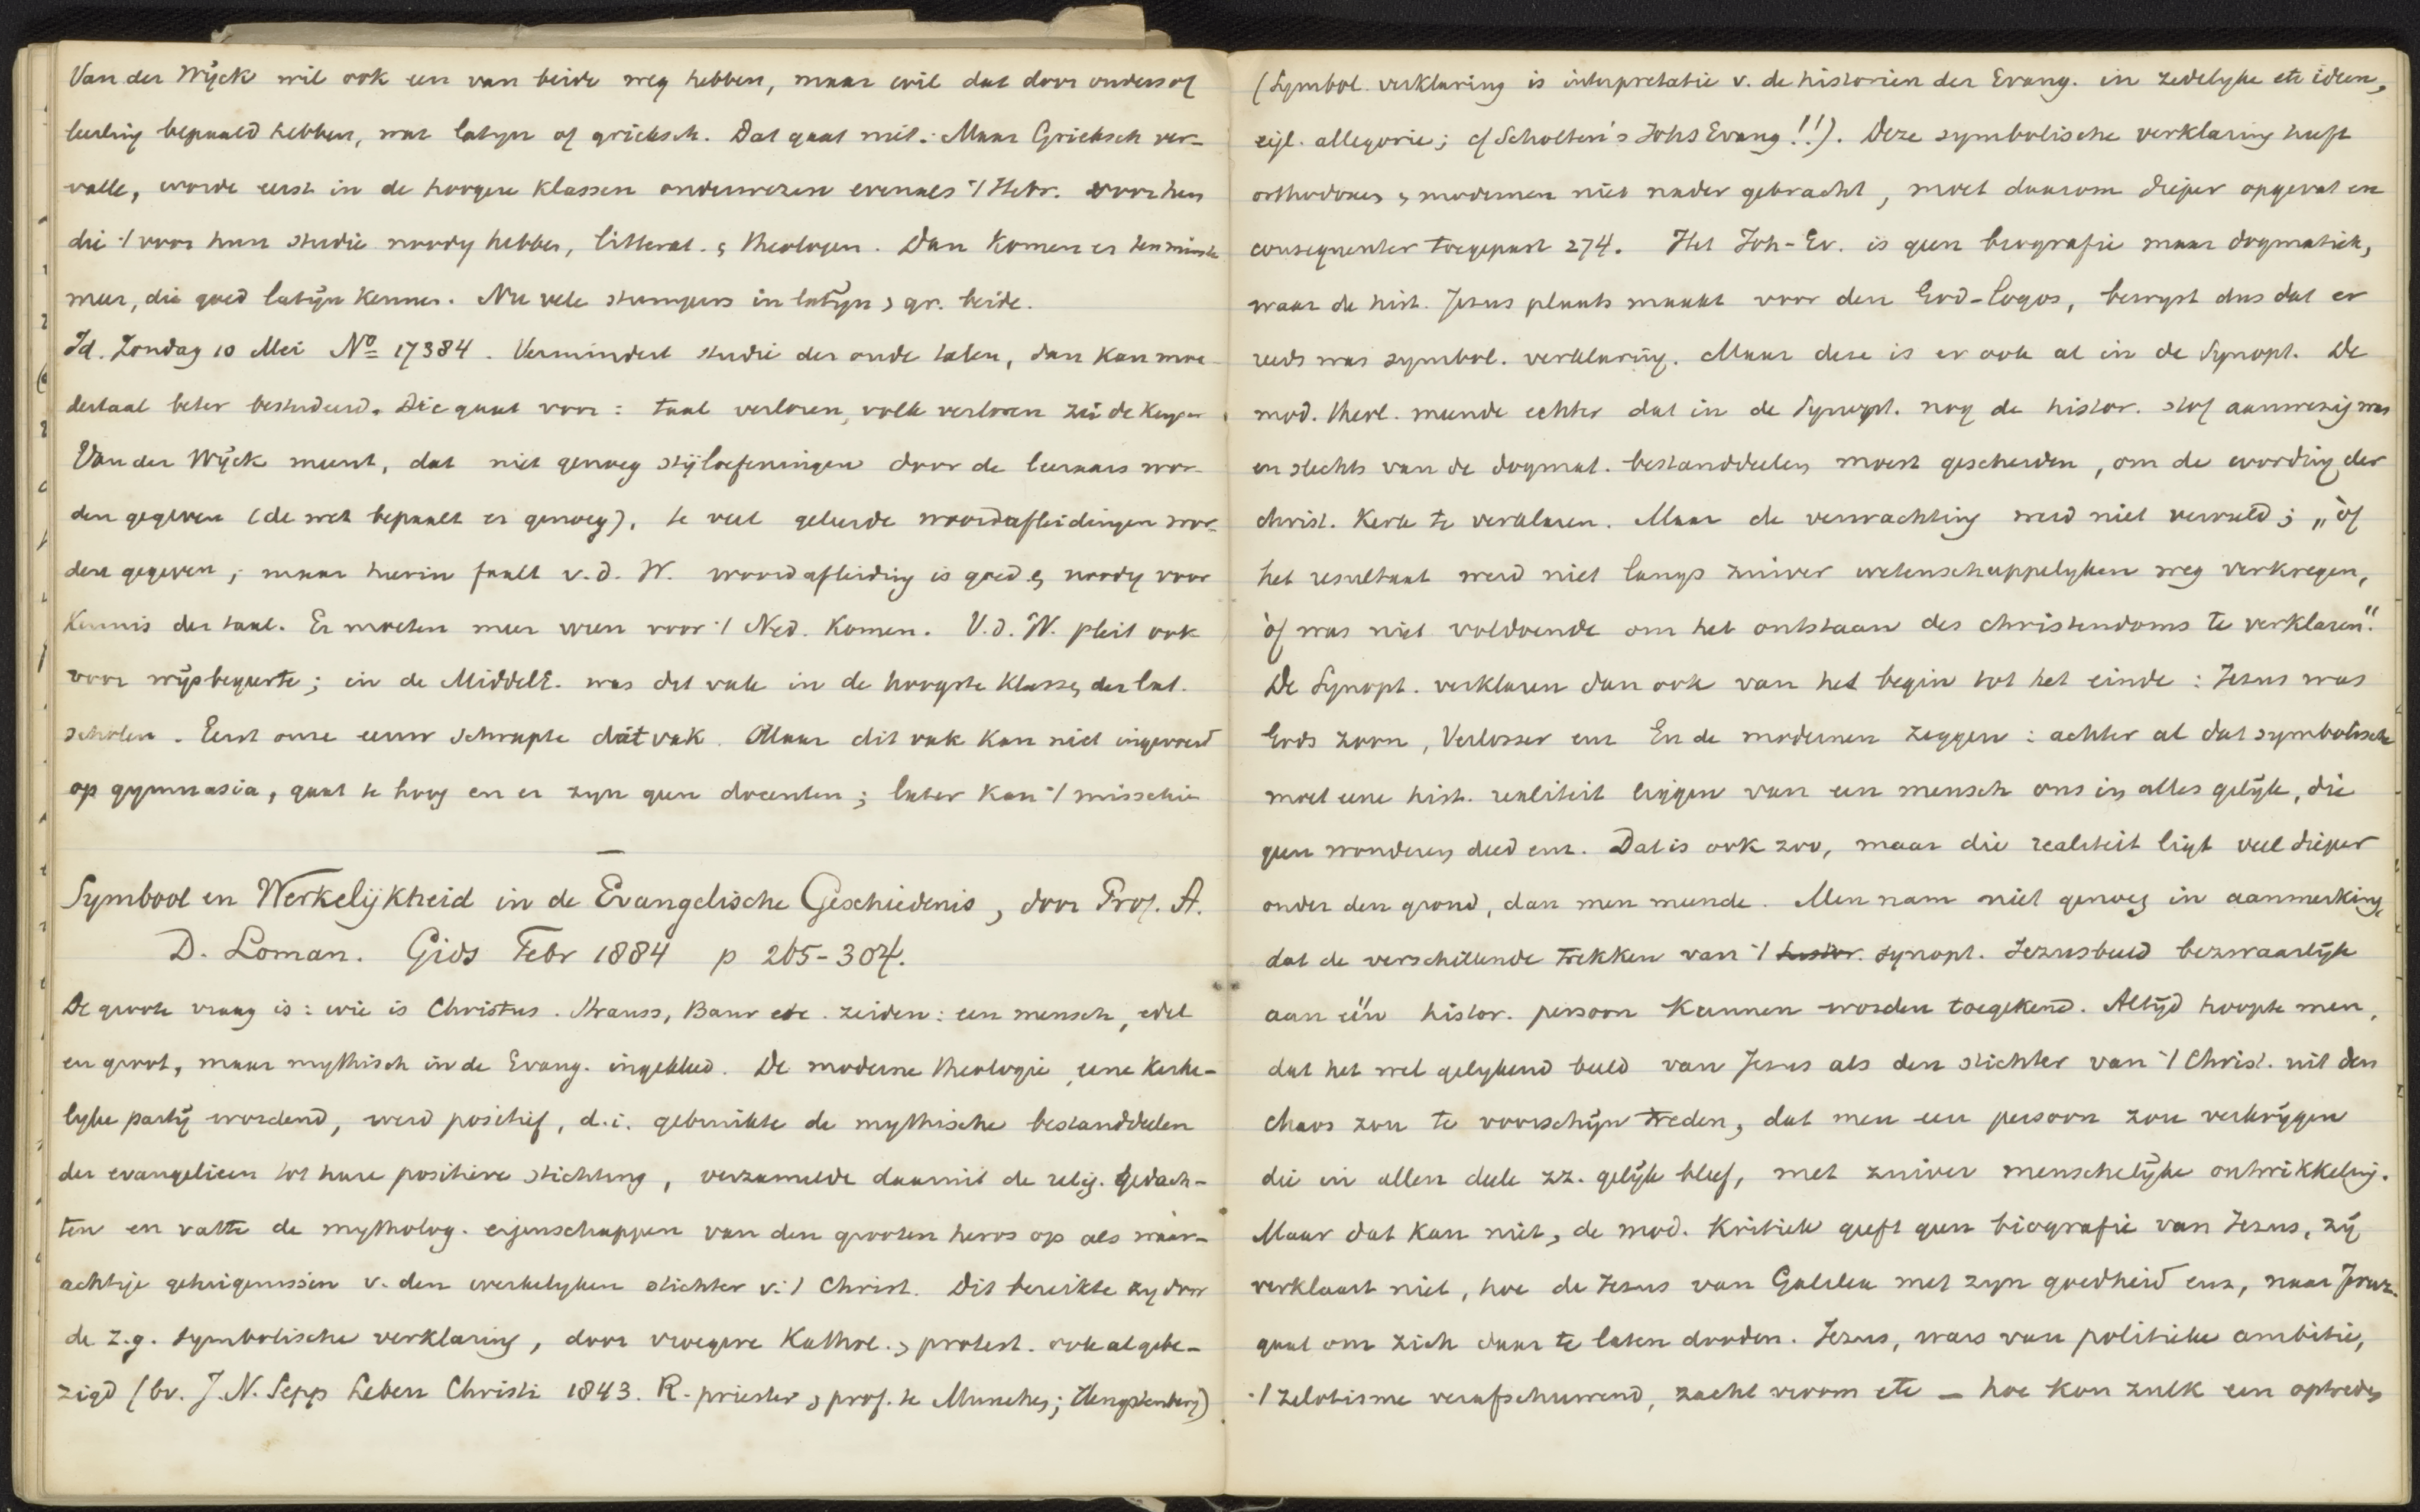 Van der Wÿck wil ook een van beide weg hebben, maar wil dat door ouders of
leerling bepaald hebben, wat latyn of grieksch. Dat gaat niet. Maar Grieksch ver-
valle, worde eerst in de hoogere klassen onderwezen evenals 't Hebr. voor hen
die 't voor hun studie noody hebben, litterat. & theologen. Dan komen er tenminste
meer, die goed latÿn kennen. Nu vele stumpers in latÿn & gr. beide.
Id. Zondag 10 Mei No 17384. Vermindert studie der oude talen, dan kan moe-
dertaal beter bestudeerd. Die gaat voor: taal verloren, volk verloren zei de Keyser
Van der Wÿck meent, dat niet genoeg stÿloefeningen door de leeraars wor-
den gegeven (de wet bepaalt er genoeg), te veel geleerde woordafleidingen wor-
den gegeven; maar hierin faalt v.d. W. woordafleiding is goed & noody voor
Kennis der taal. Er moeten meer uren voor 't Ned. komen. V.d.W. pleit ook
voor wÿsbegeerte; in de MiddelE. was dit vak in de hoogste klassen der lat.
scholen. Eerst onze eeuw schrapte dát vak. Maar dit vak kan niet ingevoerd
op gymnasia, gaat te hoog en er zyn geen docenten; later kan 't misschien
Symbool en Werkelijkheid in de Evangelische Geschiedenis, door Prof. A.
D. Loman. Gids Febr 1884 p 265-304.
De groote vraag is: wie is Christus. Strauss, Baur etc. zeiden: een mensch, edel
en groot, maar mythisch in de Evang. ingekleed. De moderne theologie, eene kerke-
lyke partÿ wordend, werd positief, d.i. gebruikte de mythische bestanddeelen
der evangelieen tot hare positieve stichting, verzamelde daaruit de relig. gedach-
ten en vatte de mytholog. eigenschappen van den grooten heros op als waar-
achtige getuigenissen v. den werkelyken stichter v. 't Christ. Dit bereikte zy door
de z.g. symbolische verklaring, door vroegere Kathol. & protest. ook al gebe-
zigd (bv. J.N. Sepps Leben Christi 1843. R-priester & prof. te Munchen; Hengstenberg)
(Symbol. verklaring is interpretatie v. de historien der Evang. in zedelyke etc ideen,
eigl. allegorie; cf Scholten's Johs Evang!!). Deze symbolische verklaring heeft
orthodoxen & modernen niet nader gebracht, moet daarom dieper opgevat en
consequenter toegepast 274. Het Joh-Ev. is geen biografie maar dogmatiek,
waar de hist. Jesus plaats maakt voor den God-Logos, bewyst dus dat er
reeds was symbol. verklaring. Maar deze is er ook al in de Synopt. De
mod. theol. meende echter dat in de Synopt. nog de histor. stof aanwezig was
en slechts van de dogmat. bestanddeelen moest gescheiden, om de wording der
christ. Kerk te verklaren. Maar de verwachting werd niet vervuld; „òf
het resultaat werd niet langs zuiver wetenschappelyken weg verkregen,
òf was niet voldoende om het ontstaan des christendoms te verklaren".
De Synopt. verklaren dan ook van het begin tot het einde: Jezus was
Gods zoon, Verlosser enz En de modernen zeggen: achter al dat symbolische
moet eene hist. realiteit liggen van een mensch ons in alles gelÿk, die
geen wonderen deed enz. Dat is ook zoo, maar die realiteit ligt veel dieper
onder den grond, dan men meende. Men nam niet genoeg in aanmerking,
dat de verschillende trekken van 't histor. synopt. Jezusbeeld bezwaarlÿk
aan één histor. persoon kunnen worden toegekend. Altÿd hoopte men,
dat het wel gelykend beeld van Jesus als den stichter van 't Christ. uit den
chaos zou te voorschÿn treden, dat men een persoon zou verkrÿgen
die in allen deele zz. gelÿk bleef, met zuiver menschelÿke ontwikkeling.
Maar dat kan niet, de mod. Kritiek geeft geen biografie van Jezus, zÿ
verklaart niet, hoe de Jezus van Galilea met zyn goedheid enz, naar Jeruz.
gaat om zich daar te laten dooden. Jezus, wars van politieke ambitie,
't zelotisme verafschuwend, zacht vroom etc — hoe kon zulk een optreden